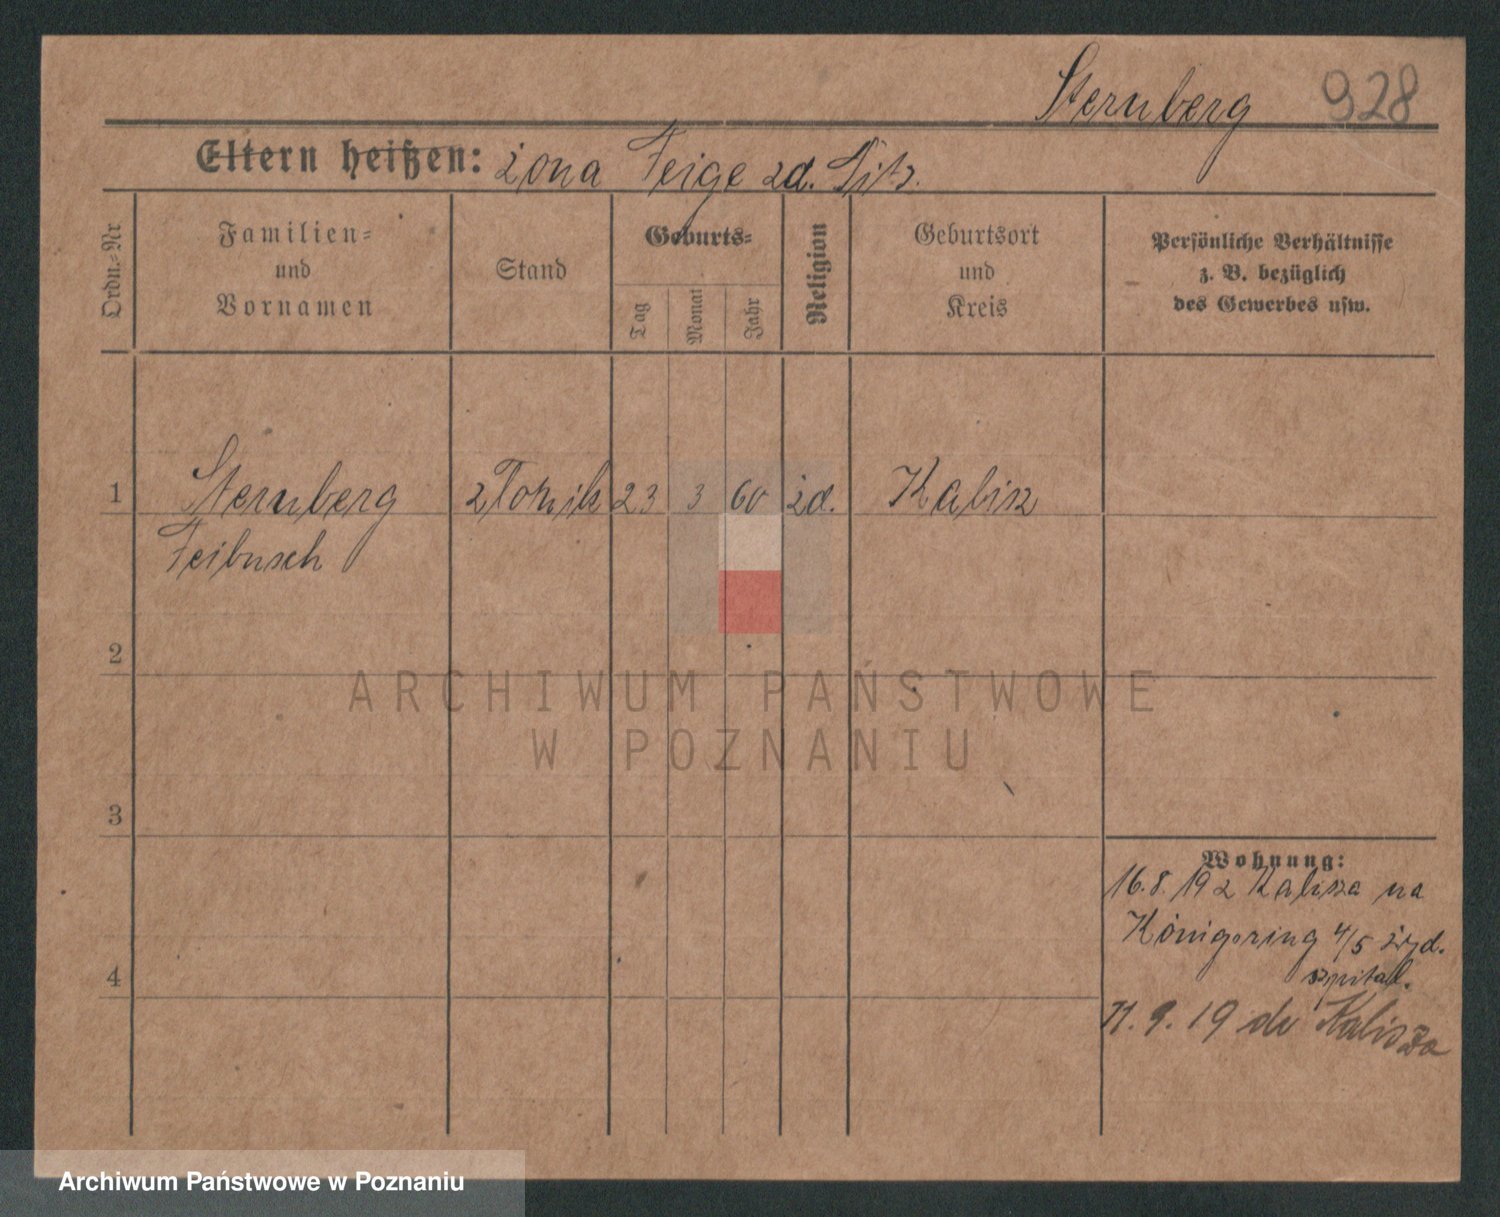 Sternberg 928
Eltern heißen: żona Feige zd. Pitz.
Ordn.=Nr
Familien=
und
Vornamen
Stand
Geburts=
Tag
Monat
Jahr
Religion
Geburtsort
und
Kreis
Persönliche Verhältnisse
z. B. bezüglich
des Gewerbes usw.
1 Sternberg złotnik 23 3 60 żd. Kalisz
Feibusch
2
3
4
Wohnung:
16.8.19 z Kalisza na
Königsring 4/5 żyd.
szpital.
11.9.19 do Kalisza
ARCHIWUM PAŃSTWOWE
W POZNANIU
Archiwum Państwowe w Poznaniu